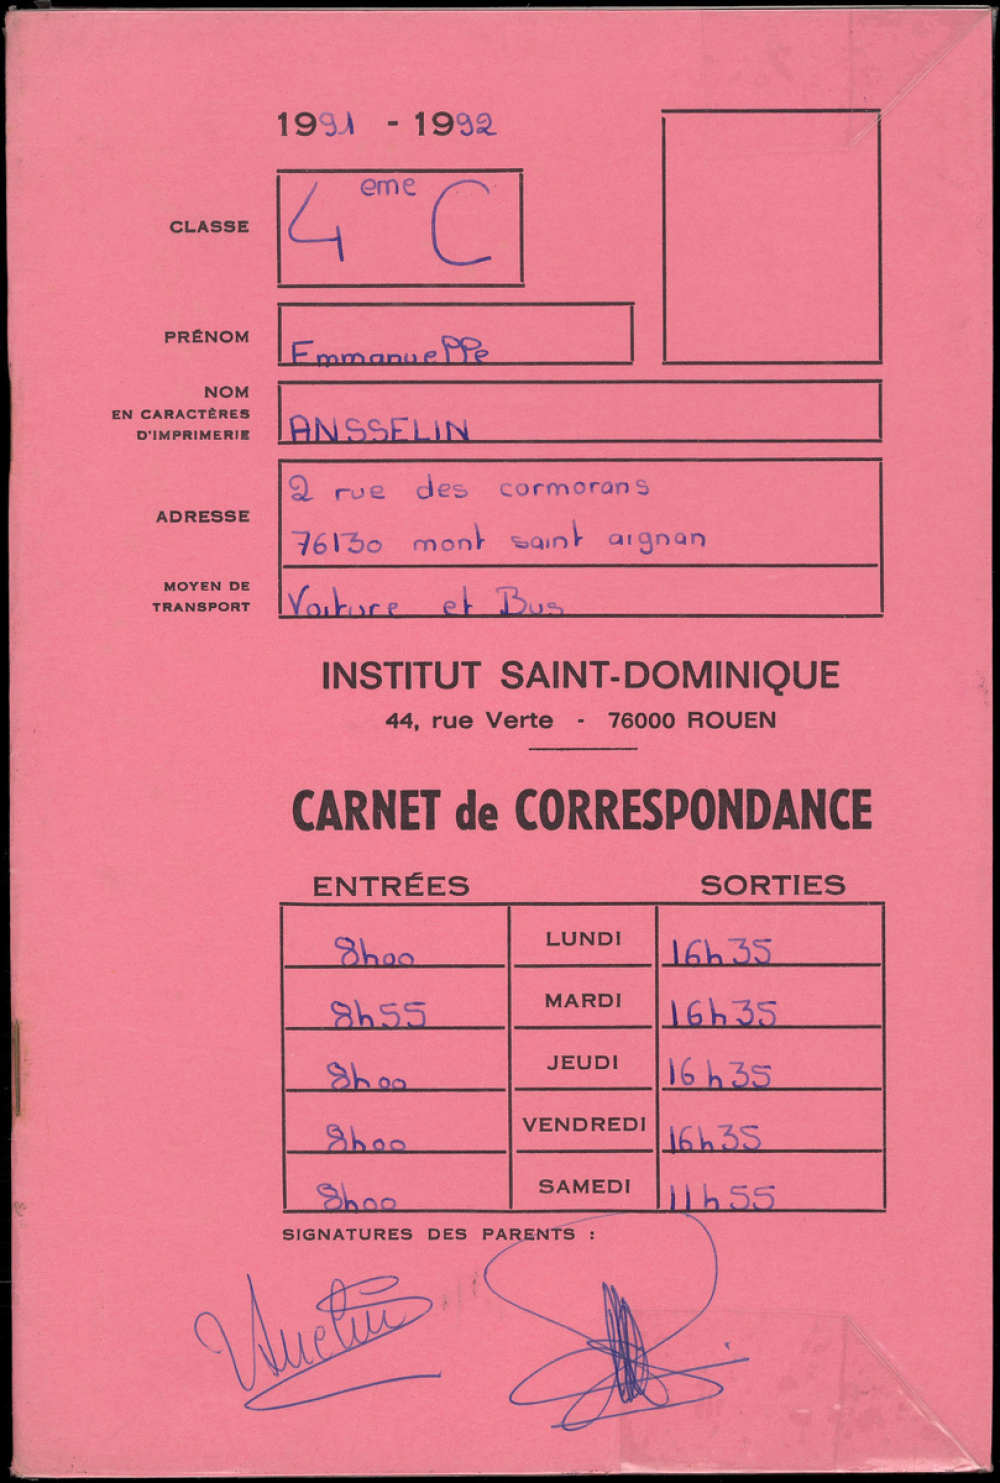 1991 - 1992
CLASSE 4 eme C
PRÉNOM Emmanuelle
NOM
EN CARACTÈRES
D'IMPRIMERIE ANSSELIN
ADRESSE 2 rue des cormorans
76130 mont saint aignan
MOYEN DE
TRANSPORT Voiture et Bus
INSTITUT SAINT-DOMINIQUE
44, rue Verte - 76000 ROUEN
CARNET de CORRESPONDANCE
ENTRÉES SORTIES
8h00 LUNDI 16h35
8h55 MARDI 16h35
8h00 JEUDI 16h35
8h00 VENDREDI 16h35
8h00 SAMEDI 11h55
SIGNATURES DES PARENTS :